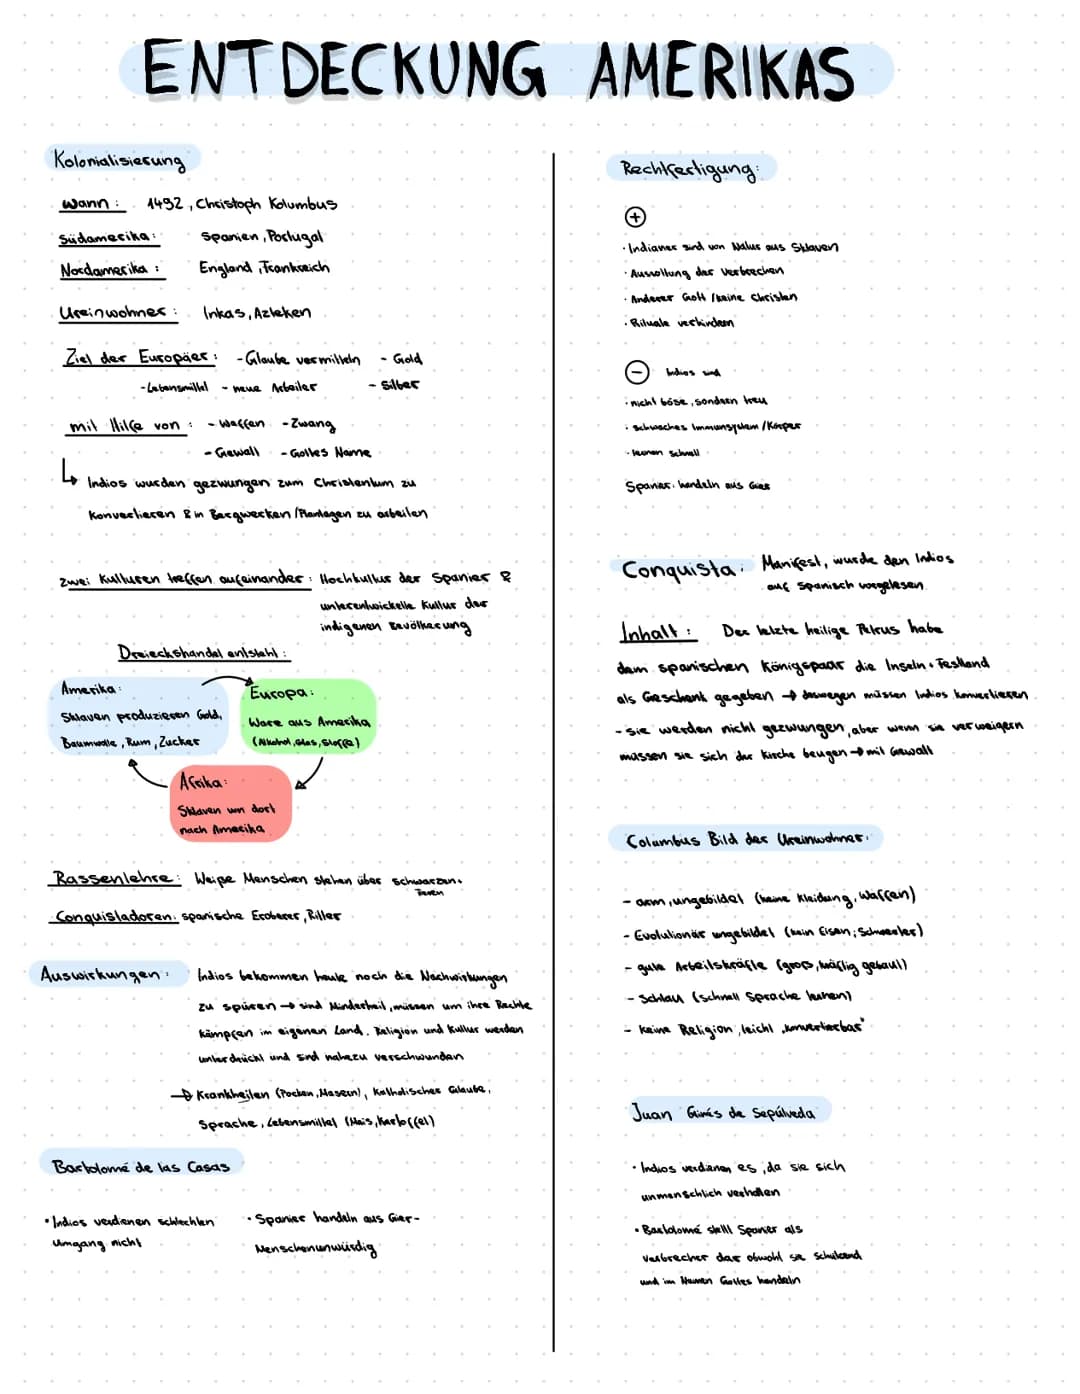 ENTDECKUNG AMERIKAS
Kolonialisierung
wann: 1492, Christoph Kolumbus
Südamerika: Spanien, Portugal
Nordamerika: England, Frankreich
Ureinwohner: Inkas, Azteken
Ziel der Europäer: -Glaube vermitteln - Gold
-Lebensmittel - neue Arbeiter - Silber
mit Hilfe von: - Waffen - Zwang
- Gewalt - Gottes Name
↳ Indios wurden gezwungen zum Christentum zu
konvertieren & in Bergwerken/Plantagen zu arbeiten
zwei Kulturen treffen aufeinander: Hochkultur der Spanier &
unterentwickelte Kultur der
indigenen Bevölkerung
Dreieckshandel entsteht:
Amerika:
Sklaven produzieren Gold,
Baumwolle, Rum, Zucker
Europa:
Ware aus Amerika
(Alkohol, Glas, Stoffe)
Afrika:
Sklaven von dort
nach Amerika
Rassenlehre: Weiße Menschen stehen über schwarzen.
Tieren
Conquistadoren: spanische Eroberer, Ritter
Auswirkungen: Indios bekommen heute noch die Nachwirkungen
zu spüren → sind Minderheit, müssen um ihre Rechte
kämpfen im eigenen Land. Religion und Kultur werden
unterdrückt und sind nahezu verschwunden
→ Krankheiten (Pocken, Masern), Katholischer Glaube,
Sprache, Lebensmittel (Mais, Kartoffel)
Bartolomé de las Casas
• Indios verdienen schlechten
Umgang nicht
• Spanier handeln aus Gier-
Menschenunwürdig
Rechtfertigung:
+
· Indianer sind von Natur aus Sklaven
· Ausrottung der Verbrechen
· Anderer Gott /keine Christen
· Rituale verhindern
- Indios sind
· nicht böse, sondern treu
· schwaches Immunsystem/Körper
· lernen schnell
Spanier: handeln aus Gier
Conquista: Manifest, wurde den Indios
auf spanisch vorgelesen
Inhalt: Der letzte heilige Petrus habe
dem spanischen Königspaar die Inseln + Festland
als Geschenk gegeben → deswegen müssen Indios konvertieren
- sie werden nicht gezwungen, aber wenn sie verweigern
müssen sie sich der Kirche beugen → mit Gewalt
Columbus Bild der Ureinwohner:
- arm, ungebildet (keine Kleidung, Waffen)
- Evolutionär ungebildet (kein Eisen, Schwerter)
- gute Arbeitskräfte (groß, kräftig gebaut)
- Schlau (schnell Sprache lernen)
- keine Religion, leicht „konvertierbar"
Juan Ginés de Sepúlveda
• Indios verdienen es, da sie sich
unmenschlich verhalten
• Bartolomé stellt Spanier als
Verbrecher dar obwohl sie
und im Namen Gottes handeln